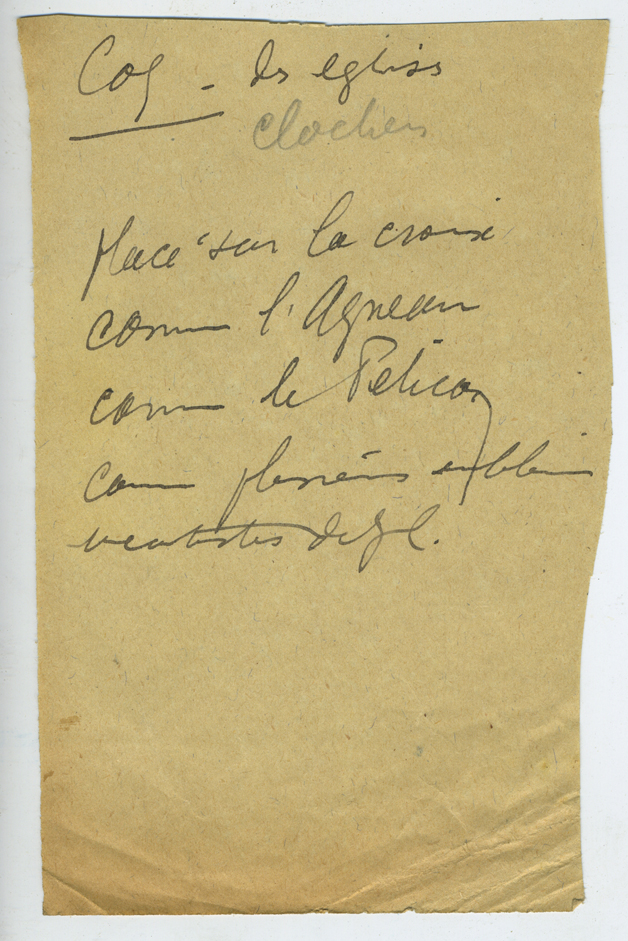 Coq - des églises
clochers
placé sur la croix
comme l'Agneau
comme le Pelican
comme plusieurs emblèmes